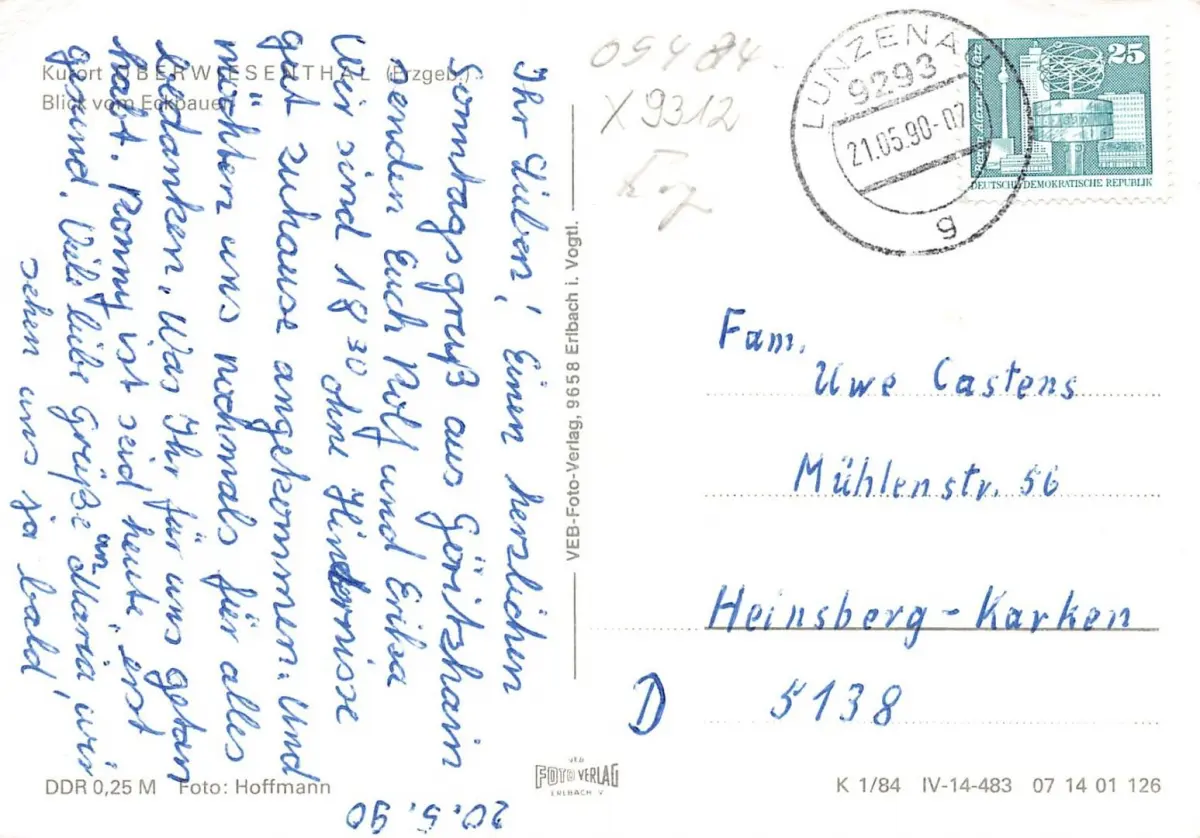 Kurort OBERWIESENTHAL (Erzgeb.)
Blick vom Eckbauer
Ihr Lieben! Einen herzlichen
Sonntagsgruß aus Göritzhain
senden Euch Rolf und Erika
Wir sind 18 30 ohne Hindernisse
gut zuhause angekommen. Und
möchten uns nochmals für alles
bedanken. Was Ihr für uns getan
habt. Ronny ist seid heute „erst
gesund. Viele liebe Grüße an Maria, wir
sehen uns ja bald!
20.5.90
DDR 0,25 M Foto: Hoffmann
VEB-Foto-Verlag, 9658 Erlbach i. Vogtl.
VEB
FOTO VERLAG
ERLBACH V
09484
X 9312
LUNZENAU
9293
21.05.90-07
g
25
Berlin-Alexanderplatz
DEUTSCHE DEMOKRATISCHE REPUBLIK
Fam.
Uwe Castens
Mühlenstr. 56
Heinsberg-Karken
D 5138
K 1/84 IV-14-483 07 14 01 126